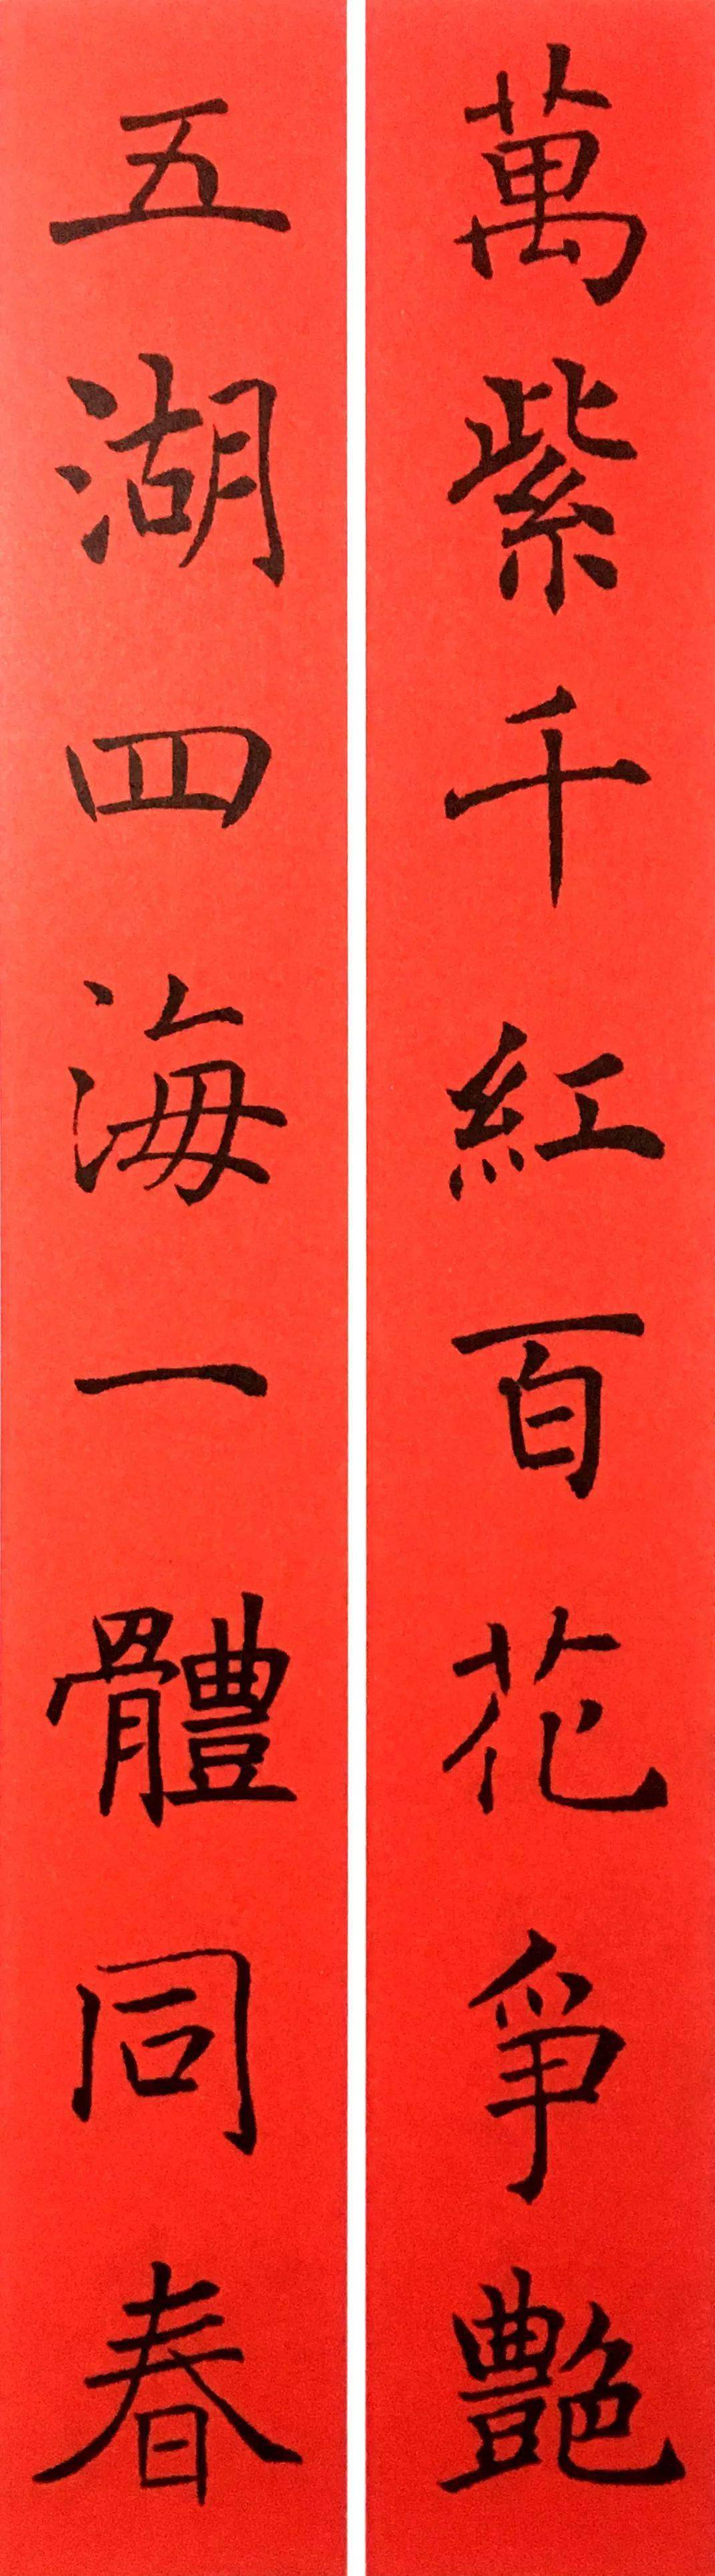 萬紫千紅百花爭艷
五湖四海一體同春